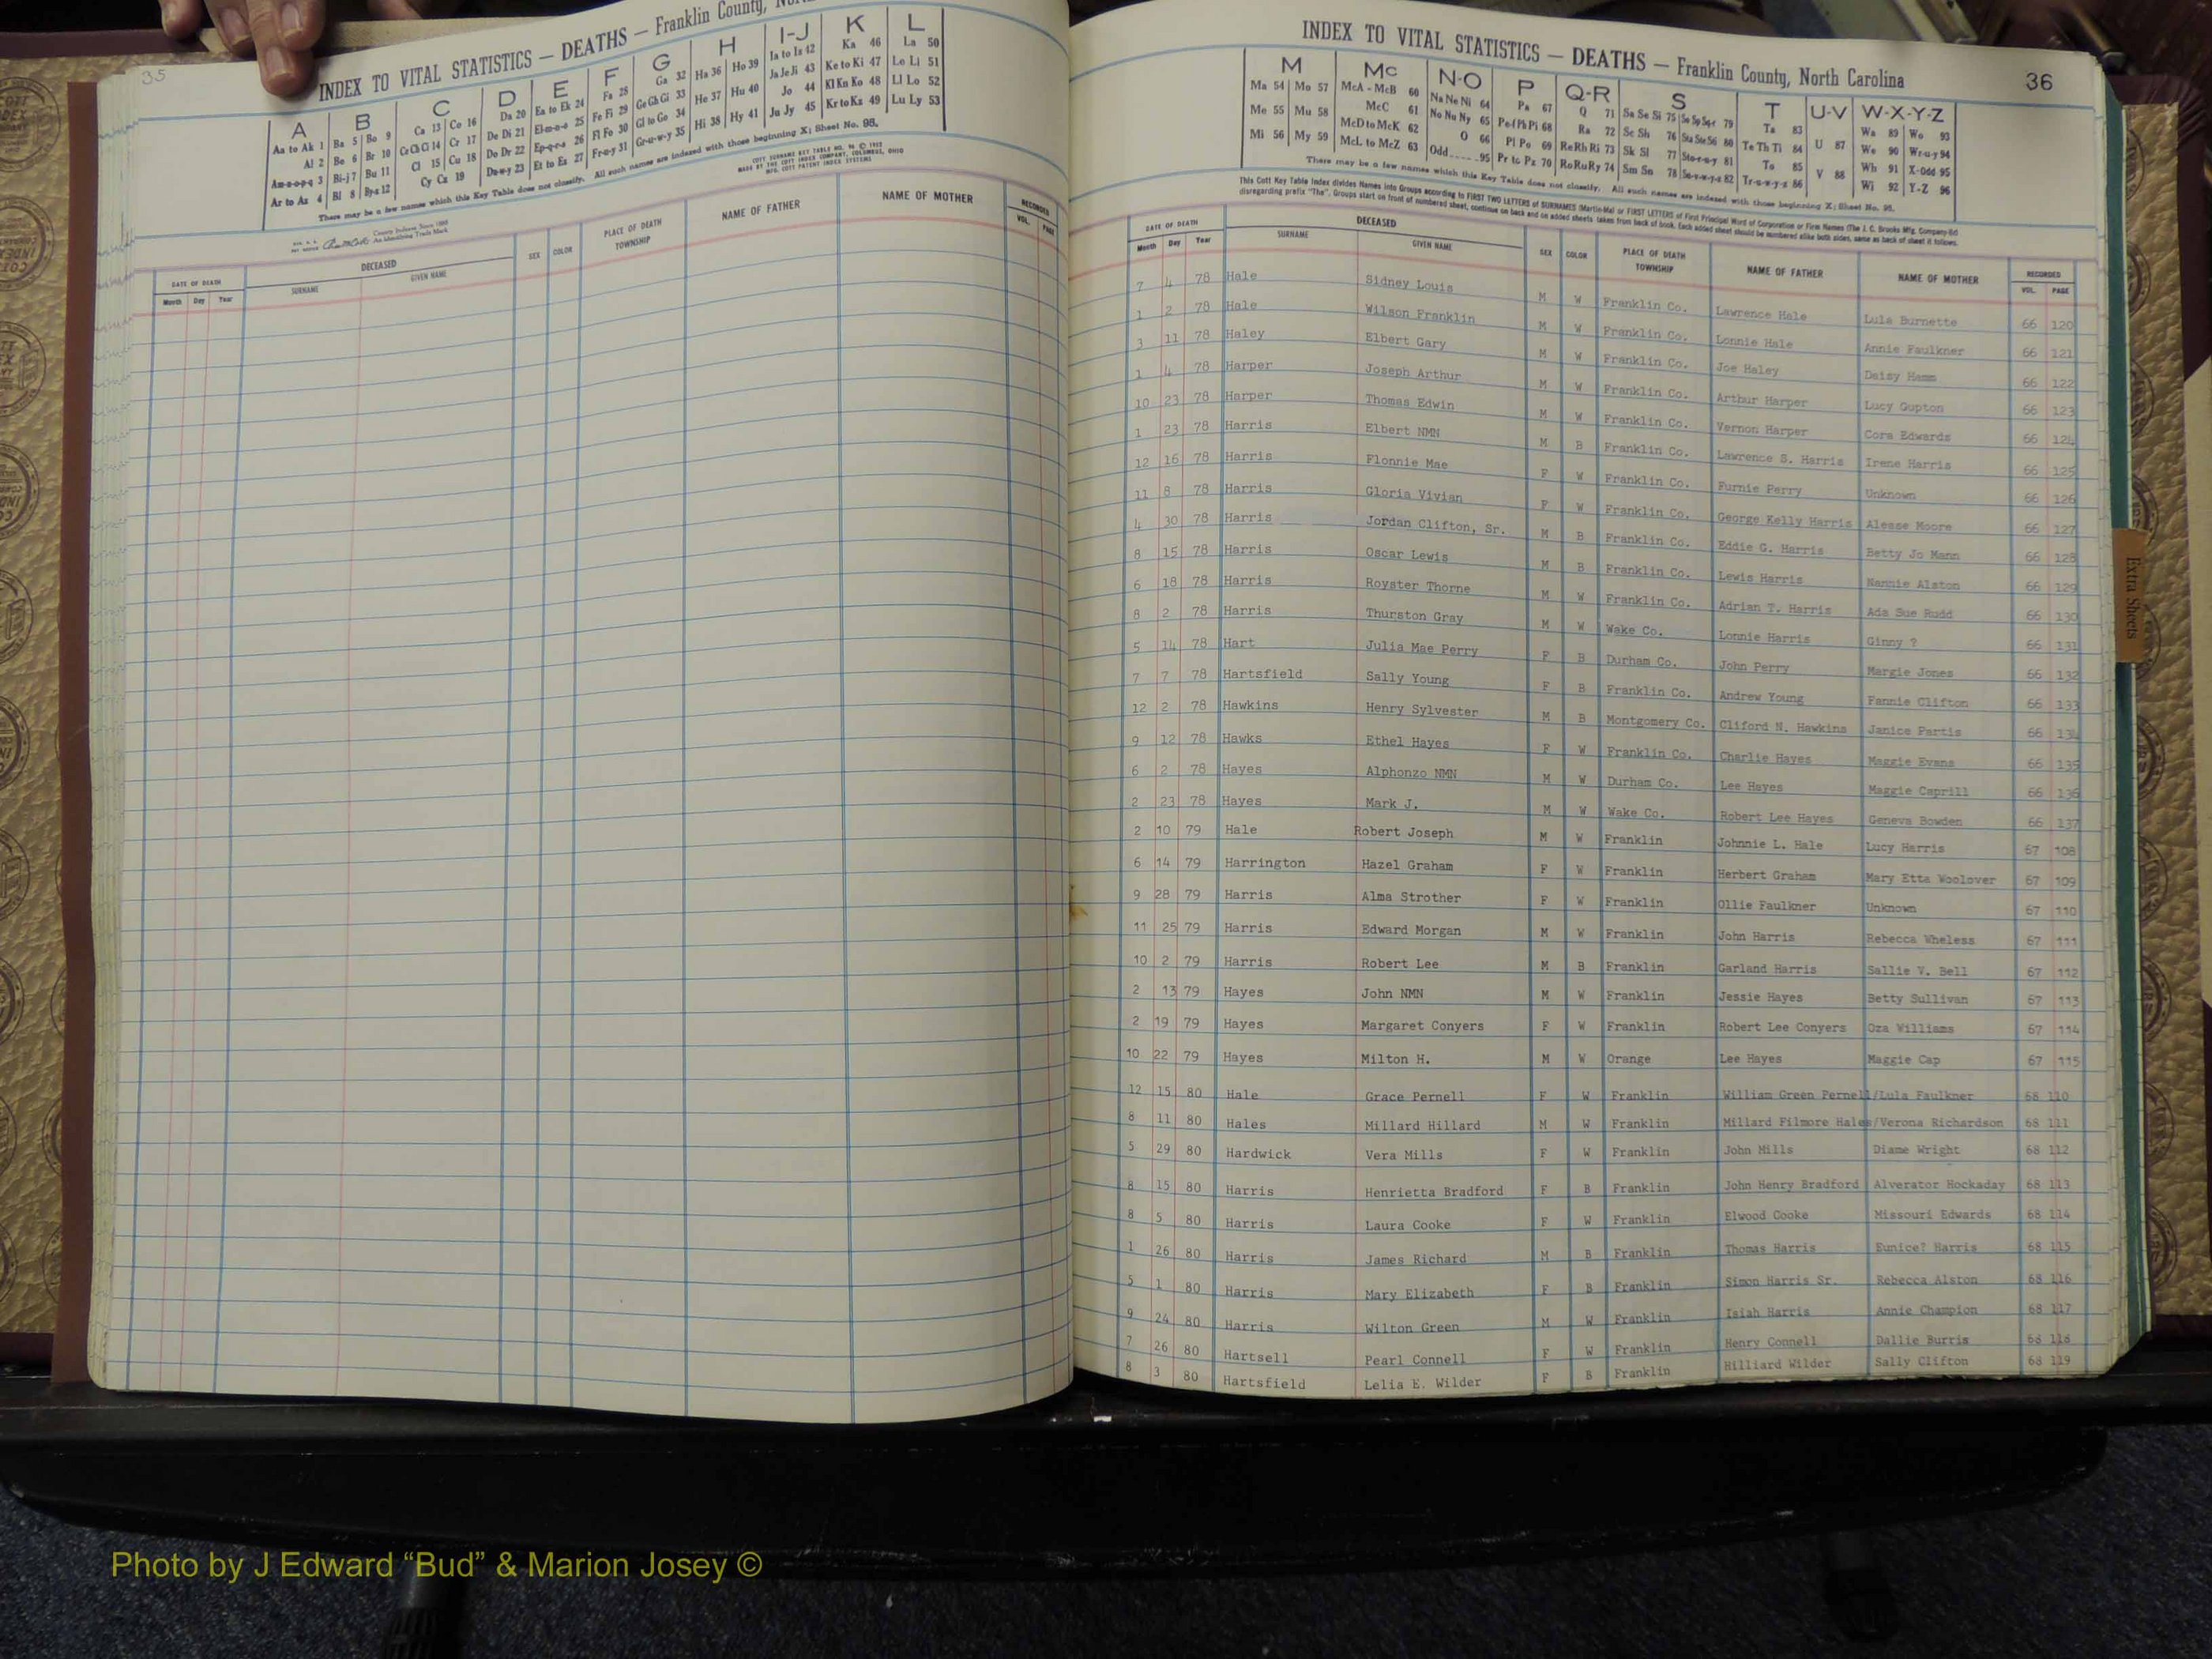 35
INDEX TO VITAL STATISTICS — DEATHS — Franklin County,
A B C D E F G H I-J K L
Aa to Ak 1 Ba 5 Bo 9 Ca 13 Co 16 Da 20 Ea to Ek 24 Fa 28 Ga 32 Ha 36 Ho 39 Ia to Iz 42 Ka 46 La 50
Al 2 Be 6 Br 10 Ce Ch Ci 14 Cr 17 De Di 21 El-m-n-o 25 Fe Fi 29 Ge Gh Gi 33 He 37 Hu 40 Ja Je Ji 43 Ke to Ki 47 Le Li 51
Am-n-o-p-q 3 Bi-j 7 Bu 11 Cl 15 Cu 18 Do Dr 22 Ep-q-r-s 26 Fl Fo 30 Gl to Go 34 Hi 38 Hy 41 Jo 44 Kl Kn Ko 48 Ll Lo 52
Ar to Az 4 Bl 8 By-z 12 Cy Cz 19 Du-w-y 23 Et to Ez 27 Fr-u-y 31 Gr-u-w-y 35 Ju Jy 45 Kr to Kz 49 Lu Ly 53
There may be a few names which this Key Table does not classify. All such names are indexed with those beginning X; Sheet No. 95.
DATE OF DEATH DECEASED SEX COLOR PLACE OF DEATH NAME OF FATHER NAME OF MOTHER RECORDED
Month Day Year SURNAME GIVEN NAME TOWNSHIP VOL. PAGE
INDEX TO VITAL STATISTICS — DEATHS — Franklin County, North Carolina 36
M Mc N-O P Q-R S T U-V W-X-Y-Z
Ma 54 Mo 57 McA - McB 60 Na Ne Ni 64 Pa 67 Q 71 Sa Se Si 75 So Sp Sq-r 79 Ta 83 U 87 Wa 89 Wo 93
Me 55 Mu 58 McC 61 No Nu Ny 65 Pe-f Ph Pi 68 Ra 72 Sc Sh 76 Sta Ste 56 80 Te Th Ti 84 V 88 We 90 Wr-u-y 94
Mi 56 My 59 McD to McK 62 O 66 Pl Po 69 Re Rh Ri 73 Sk Sl 77 Sto-r-u-y 81 To 85 Wh 91 X-Odd 95
McL to McZ 63 Odd 95 Pr to Pz 70 Ro Ru Ry 74 Sm Sn 78 Su-v-w-y-z 82 Tr-u-w-y-z 86 Wi 92 Y-Z 96
There may be a few names which this Key Table does not classify. All such names are indexed with those beginning X; Sheet No. 95.
This Cott Key Table Index divides Names into Groups according to FIRST TWO LETTERS of SURNAMES (Martin-Ma) or FIRST LETTERS of First Principal Word of Corporation or Firm Names (The J. C. Brooks Mfg. Company-Br)
disregarding prefix "The". Groups start on front of numbered sheet, continue on back and on added sheets taken from back of book. Each added sheet should be numbered alike both sides, same as back of sheet it follows.
DATE OF DEATH DECEASED SEX COLOR PLACE OF DEATH NAME OF FATHER NAME OF MOTHER RECORDED
Month Day Year SURNAME GIVEN NAME TOWNSHIP VOL. PAGE
7 4 78 Hale Sidney Louis M W Franklin Co. Lawrence Hale Lula Burnette 66 120
1 2 78 Hale Wilson Franklin M W Franklin Co. Lonnie Hale Annie Faulkner 66 121
3 11 78 Haley Elbert Gary M W Franklin Co. Joe Haley Daisy Hamm 66 122
1 4 78 Harper Joseph Arthur M W Franklin Co. Arthur Harper Lucy Gupton 66 123
10 23 78 Harper Thomas Edwin M W Franklin Co. Vernon Harper Cora Edwards 66 124
1 23 78 Harris Elbert NMN M B Franklin Co. Lawrence S. Harris Irene Harris 66 125
12 16 78 Harris Flonnie Mae F W Franklin Co. Furnie Perry Unknown 66 126
11 8 78 Harris Gloria Vivian F W Franklin Co. George Kelly Harris Alease Moore 66 127
4 30 78 Harris Jordan Clifton, Sr. M B Franklin Co. Eddie G. Harris Betty Jo Mann 66 128
8 15 78 Harris Oscar Lewis M B Franklin Co. Lewis Harris Nannie Alston 66 129
6 18 78 Harris Royster Thorne M W Franklin Co. Adrian T. Harris Ada Sue Rudd 66 130
8 2 78 Harris Thurston Gray M W Wake Co. Lonnie Harris Ginny ? 66 131
5 14 78 Hart Julia Mae Perry F B Durham Co. John Perry Margie Jones 66 132
7 7 78 Hartsfield Sally Young F B Franklin Co. Andrew Young Fannie Clifton 66 133
12 2 78 Hawkins Henry Sylvester M B Montgomery Co. Cliford N. Hawkins Janice Partis 66 134
9 12 78 Hawks Ethel Hayes F W Franklin Co. Charlie Hayes Maggie Evans 66 135
6 2 78 Hayes Alphonzo NMN M W Durham Co. Lee Hayes Maggie Caprill 66 136
2 23 78 Hayes Mark J. M W Wake Co. Robert Lee Hayes Geneva Bowden 66 137
2 10 79 Hale Robert Joseph M W Franklin Johnnie L. Hale Lucy Harris 67 108
6 14 79 Harrington Hazel Graham F W Franklin Herbert Graham Mary Etta Woolover 67 109
9 28 79 Harris Alma Strother F W Franklin Ollie Faulkner Unknown 67 110
11 25 79 Harris Edward Morgan M W Franklin John Harris Rebecca Wheless 67 111
10 2 79 Harris Robert Lee M B Franklin Garland Harris Sallie V. Bell 67 112
2 13 79 Hayes John NMN M W Franklin Jessie Hayes Betty Sullivan 67 113
2 19 79 Hayes Margaret Conyers F W Franklin Robert Lee Conyers Oza Williams 67 114
10 22 79 Hayes Milton H. M W Orange Lee Hayes Maggie Cap 67 115
12 15 80 Hale Grace Pernell F W Franklin William Green Pernell/Lula Faulkner 68 110
8 11 80 Hales Millard Hillard M W Franklin Millard Filmore Hales/Verona Richardson 68 111
5 29 80 Hardwick Vera Mills F W Franklin John Mills Diame Wright 68 112
8 15 80 Harris Henrietta Bradford F B Franklin John Henry Bradford Alverator Hockaday 68 113
8 5 80 Harris Laura Cooke F W Franklin Elwood Cooke Missouri Edwards 68 114
1 26 80 Harris James Richard M B Franklin Thomas Harris Eunice? Harris 68 115
5 1 80 Harris Mary Elizabeth F B Franklin Simon Harris Sr. Rebecca Alston 68 116
9 24 80 Harris Wilton Green M W Franklin Isiah Harris Annie Champion 68 117
7 26 80 Hartsell Pearl Connell F W Franklin Henry Connell Dallie Burris 68 118
8 3 80 Hartsfield Lelia E. Wilder F B Franklin Hilliard Wilder Sally Clifton 68 119
Extra Sheets
Photo by J Edward “Bud” & Marion Josey ©